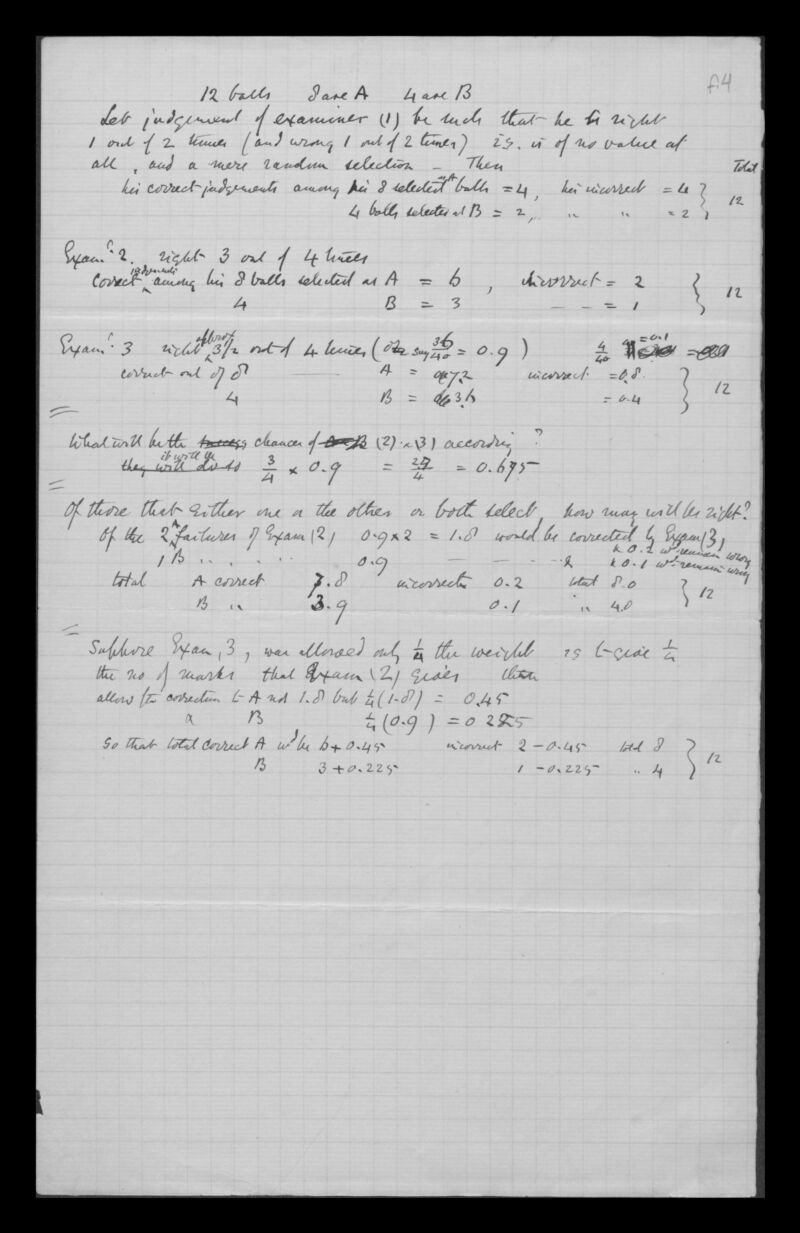 A4
12 balls 8 are A 4 are B
Let judgement of examiner (1) be such that he is right
1 out of 2 times (and wrong 1 out of 2 times) i.e. is of no value at
all, and a mere random selection – Then
Total
his correct judgements among his 8 selected as A balls = 4, his incorrect = 4 } 12
4 balls selected as B = 2, " " = 2
Exam.r 2. right 3 out of 4 times
Correct judgements among his 8 balls selected as A = 6, incorrect = 2 } 12
4 B = 3 – – = 1
Exam.r 3 right approx 3½ out of 4 times (or say 36/40 = 0.9) 4/40 = 0.1
correct out of 8 — A = 7.2 incorrect = 0.8 } 12
4 B = 3.6 = 0.4
What will be the chances of (2) & (3) according?
they will do so it will be 3/4 × 0.9 = 27/4 = 0.675
Of those that either one or the other or both select, how many will be right?
Of the 2 A failures of Exam (2) 0.9 × 2 = 1.8 would be corrected by Exam (3)
& 0.2 wd remain wrong
1 B " " " " 0.9 — — — & 0.1 wd remain wrong
total A correct 7.8 incorrect 0.2 total 8.0 } 12
B " 3.9 0.1 " 4.0
Suppose Exam, 3, was allowed only ¼ the weight eg to give ¼
the no of marks that Exam (2) gives then
allow for correction to A not 1.8 but ¼ (1.8) = 0.45
& B ¼ (0.9) = 0.225
So that total correct A wd be 6 + 0.45 incorrect 2 – 0.45 total 8 } 12
B 3 + 0.225 1 – 0.225 " 4